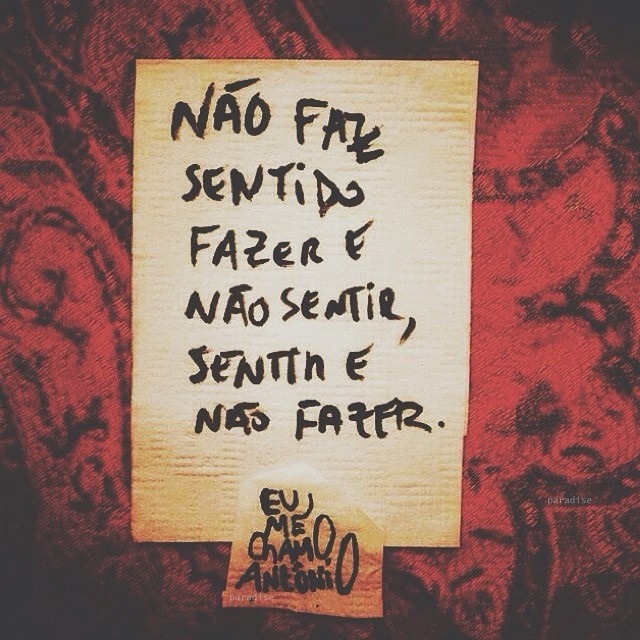 NÃO FAZ
SENTIDO
FAZER E
NÃO SENTIR,
SENTIR E
NÃO FAZER.
EU
ME
CHAMO
ANTÔNIO
paradise
paradise